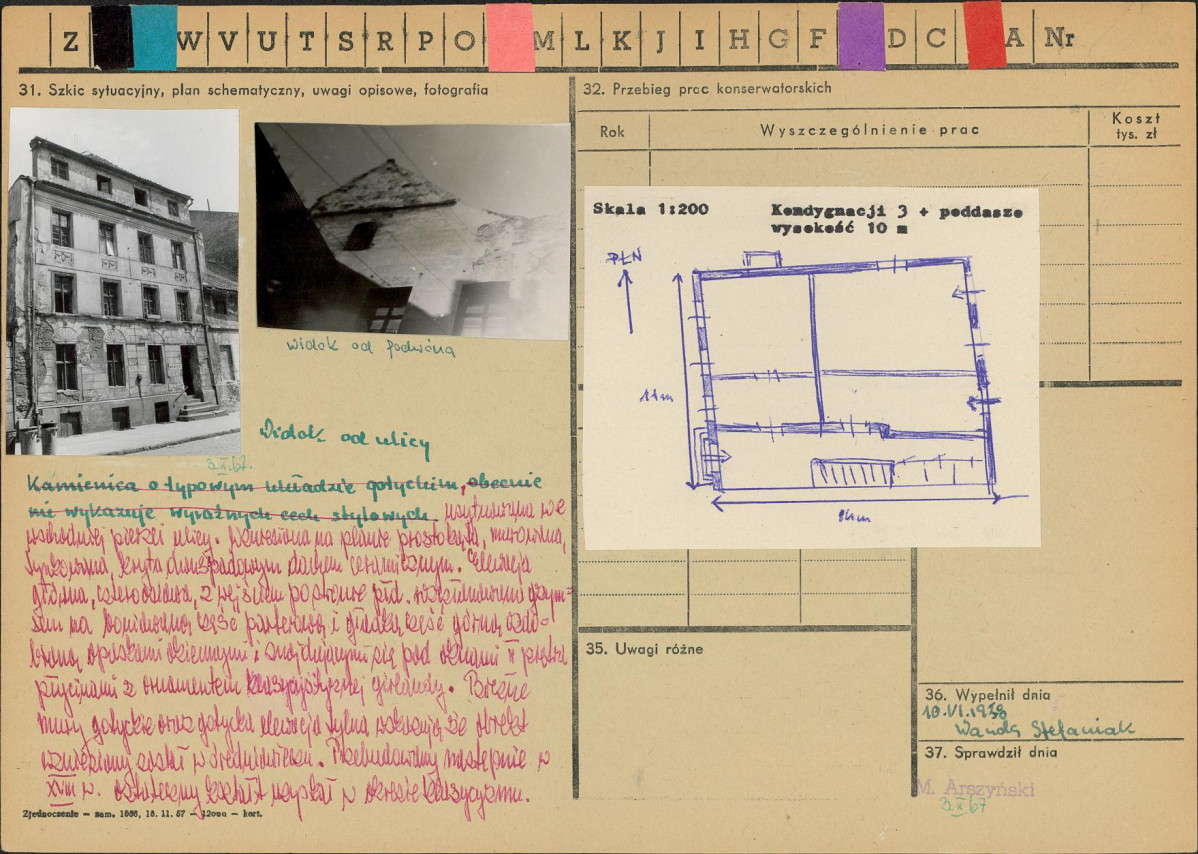 Z W V U T S R P O M L K J I H G F D C A Nr
31. Szkic sytuacyjny, plan schematyczny, uwagi opisowe, fotografia
widok od podwórza
Widok od ulicy
3.X.67.
Kamienica o typowym układzie gotyckim, obecnie
nie wykazuje wyraźnych cech stylowych. usytuowana we
wschodniej pierzei ulicy. Wzniesiona na planie prostokąta, murowana,
tynkowana, kryta dwuspadowym dachem ceramicznym. Elewacja
główna, czteroosiowa, z wejściem po stronie płd. rozczłonkowana gzym-
sem na boniowaną część parterową i gładką część górną ozdo-
bioną opaskami okiennymi i znajdującymi się pod oknami II piętra
płycinami z ornamentem klasycystycznej girlandy. Boczne
mury gotyckie oraz gotycka elewacja tylna wskazują że obiekt
wzniesiony został w średniowieczu. Przebudowany następnie w
XVIII w. ostateczny kształt uzyskał w okresie klasycyzmu.
Zjednoczenie — zam. 1086, 16. 11. 57 — 12000 — kart.
32. Przebieg prac konserwatorskich
Rok Wyszczególnienie prac Koszt
tys. zł
Skala 1:200 Kondygnacji 3 + poddasze
wysokość 10 m
PŁN
11m
35. Uwagi różne
36. Wypełnił dnia
10.VI.1958
Wanda Stefaniak
37. Sprawdził dnia
M. Arszyński
3.X.67